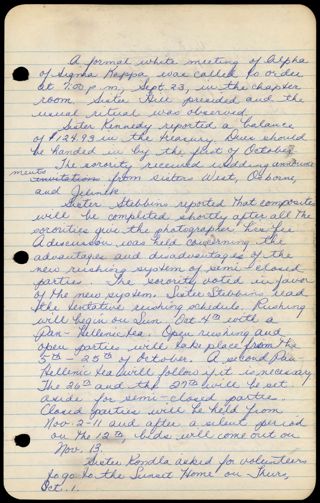 A formal white meeting of Alpha
of Sigma Kappa was called to order
at 7:00 p.m., Sept. 23, in the chapter
room. Sister Hill presided and the
usual ritual was observed.
Sister Kennedy reported a balance
of $124.93 in the treasury. Dues should
be handed in by the first of October.
The sorority received wedding announce-
ments invitations from sisters West, Osborne,
and Jelinek.
Sister Stebbins reported that composites
will be completed shortly after all the
sororities give the photographer his fee.
A discussion was held concerning the
advantages and disadvantages of the
new rushing system of semi-closed
parties. The sorority voted in favor
of the new system. Sister Stebbins read
the tentative rushing schedule. Rushing
will begin on Sun. Oct 4th with a
Pan-Hellenic tea. Open rushing and
open parties will take place from the
5th - 25th of October. A second Pan
Hellenic tea will follow if it is necessary.
The 26th and the 27th will be set
aside for semi-closed parties.
Closed parties will be held from
Nov. 2-11 and after a silent period
on the 12th, bids will come out on
Nov. 13.
Sister Kondla asked for volunteers
to go to the Sunset Home on Thurs,
Oct. 1.